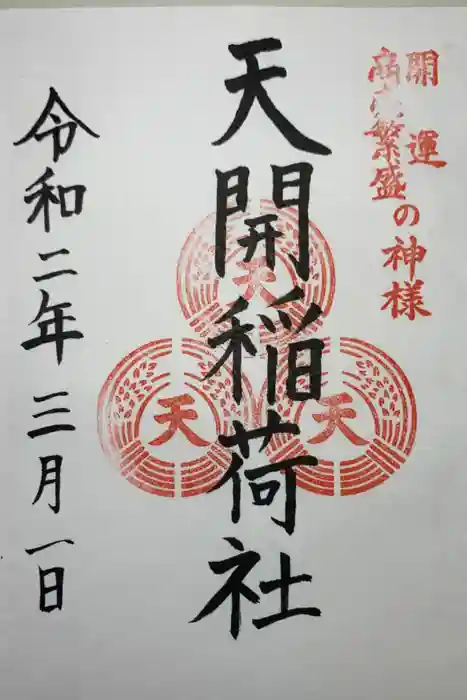 開運
商売繁盛
の神様
天開稲荷社
令和二年三月一日
天
天
天